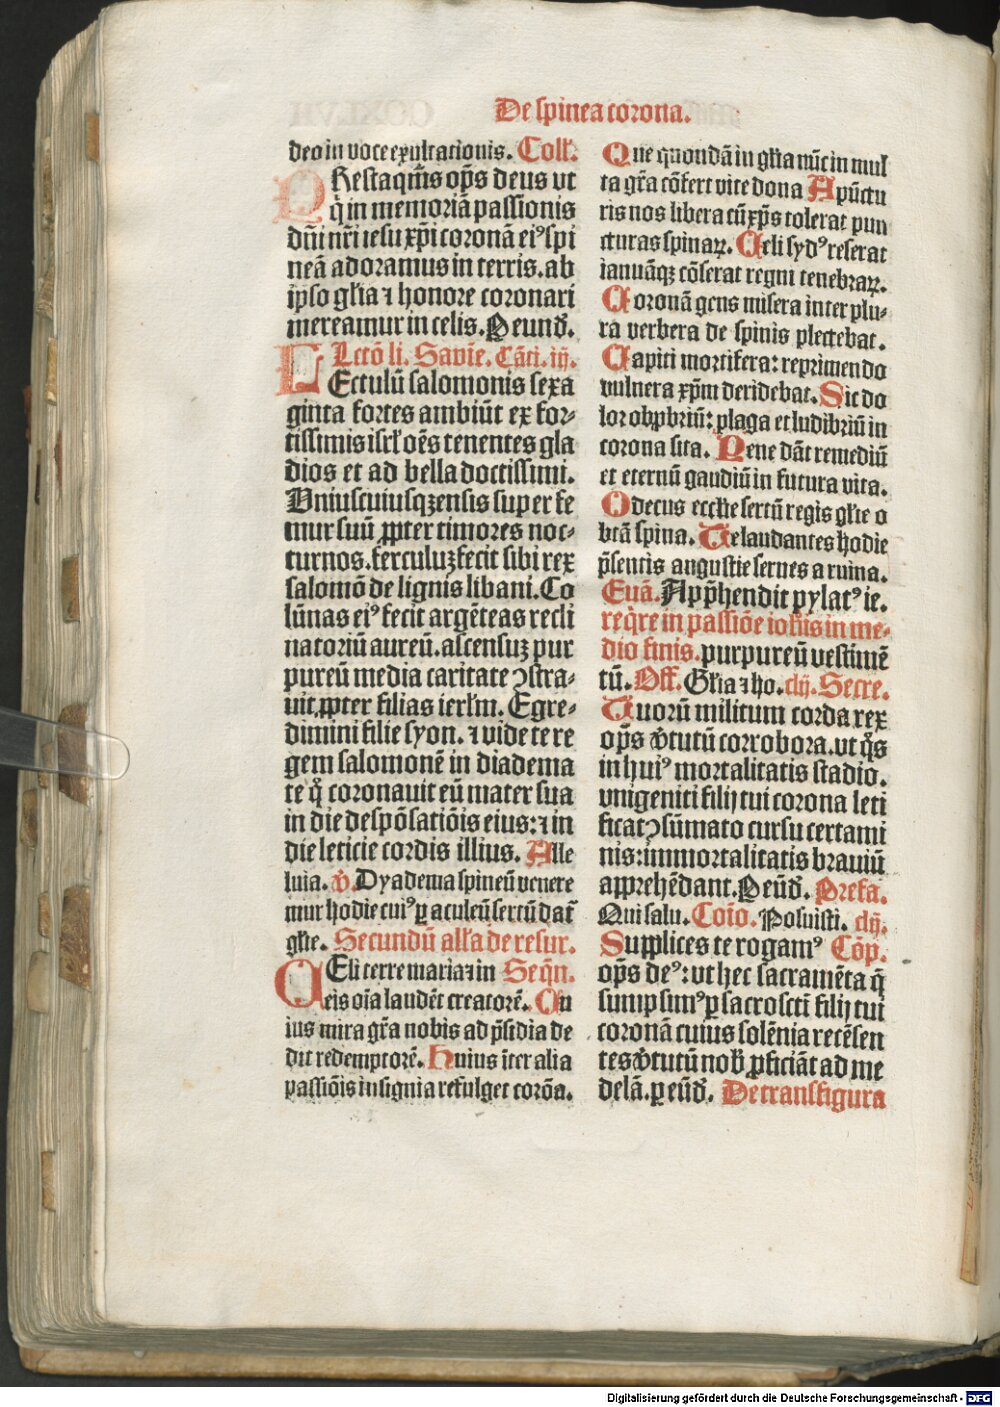 De spinea corona.
deo in voce exultationis. Coll'.
PResta q̄m̄s op̄s deus vt
q̇ in memoriā passionis
dn̄i nr̄i iesu xp̄i coronā eiꝰ spi
neā adoramus in terris. ab
ip̄o gl̄ia ⁊ honore coronari
mereamur in celis. Per eund̄.
Lctō li. Sapīe. Cāti. iij.
LEctulū salomonis sexa
ginta fortes ambiūt ex for⸗
tissimis isrl̄ oēs tenentes gla
dios et ad bella doctissimi.
Vniuscuiusqꝫ ensis super fe
mur suū ꝓpter timores noc⸗
turnos. ferculuꝫ fecit sibi rex
salomō de lignis libani. Co
lūnas eiꝰ fecit argēteas recli
natoriū aureū. ascensuꝫ pur
pureū media caritate ꝯstra⸗
uit ꝓpter filias ierl̄m. Egre⸗
dimini filie syon. ⁊ videte re
gem salomonē in diadema
te q̊ coronauit eū mater sua
in die despōsatiōis eius: ⁊ in
die leticie cordis illius. Alle
luia. v̄. Dyadema spineū venere
mur hodie cuiꝰ ꝑ aculeū sertū dat̄
gl̄ie. Secundū all'a de resur.
CEli terre maria ⁊ in Seq̄n.
eis oīa laudēt creatorē. Cu
ius mira gr̄a nobis ad p̄sidia de
dit redemptorē. Huius īter alia
passiōis insignia refulget corōa.
Que quondā in gl̄ia nūc in mul
ta gr̄a cōfert vite dona A pūctu
ris nos libera cū xp̄s tolerat pun
cturas spinaꝝ. Celi sydꝰ reserat
ianuāqꝫ cōserat regni tenebraꝝ.
Coronā gens misera inter plu⸗
ra verbera de spinis plectebat.
Capiti mortifera: reprimendo
vulnera xp̄m deridebat. Sic do
lor obprbriū: plaga et ludibriū in
corona sita. Pene dāt remediū
et eternū gaudiū in futura vita.
O decus eccl̄ie sertū regis gl̄ie o
btā spina. Te laudantes hodie
p̄sentis angustie serues a ruina.
Euā. App̄hendit pylatꝰ ie.
req̇re in passiōe ioh̄is in me⸗
dio finis. purpureū vestimē
tū. Off. Gl̄ia ⁊ ho. clij. Secre.
Tuorū militum corda rex
op̄s v̄tutū corrobora. vt q̊s
in huiꝰ mortalitatis stadio.
vnigeniti filij tui corona leti
ficat ꝯsūmato cursu certami
nis: immortalitatis brauiū
apprehēdant. Per eūd̄. Prefa.
Qui salu. Coīo. Posuisti. clij.
Supplices te rogamꝰ Cōp.
op̄s deꝰ: vt hec sacramēta q̄
sumpsimꝰ ꝑ sacroscti filij tui
coronā cuius solēnia recēsen
tes v̄tutū nob̄ ꝓficiāt ad me
delā. ꝑ eūd̄. De transfigura
Digitalisierung gefördert durch die Deutsche Forschungsgemeinschaft - DFG